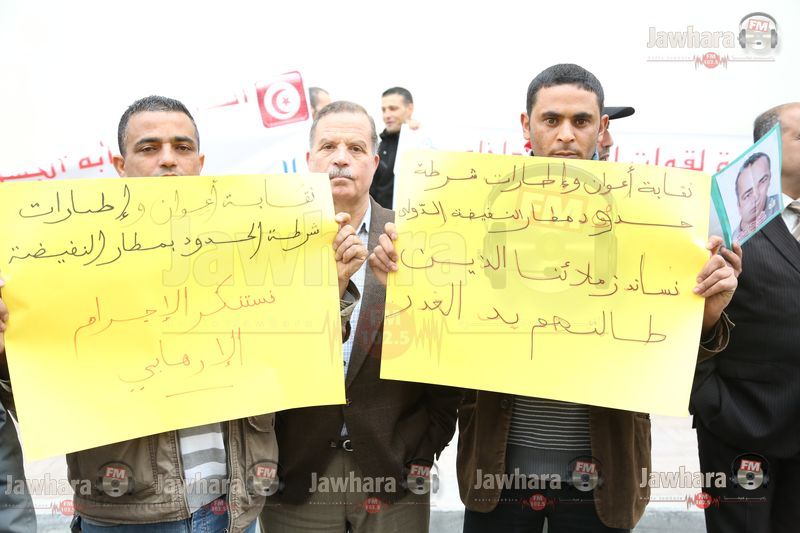 نقابة أعوان وإطارات
شرطة الحدود بمطار النفيضة
نستنكر الإجرام
الإرهابي
نقابة أعوان وإطارات شرطة
حدود مطار النفيضة الدولي
نساند زملائنا الذين
طالتهم يد الغدر
لقوات
Jawhara FM
102.5
Jawhara FM
Jawhara FM
Jawhara FM
Jawhara FM